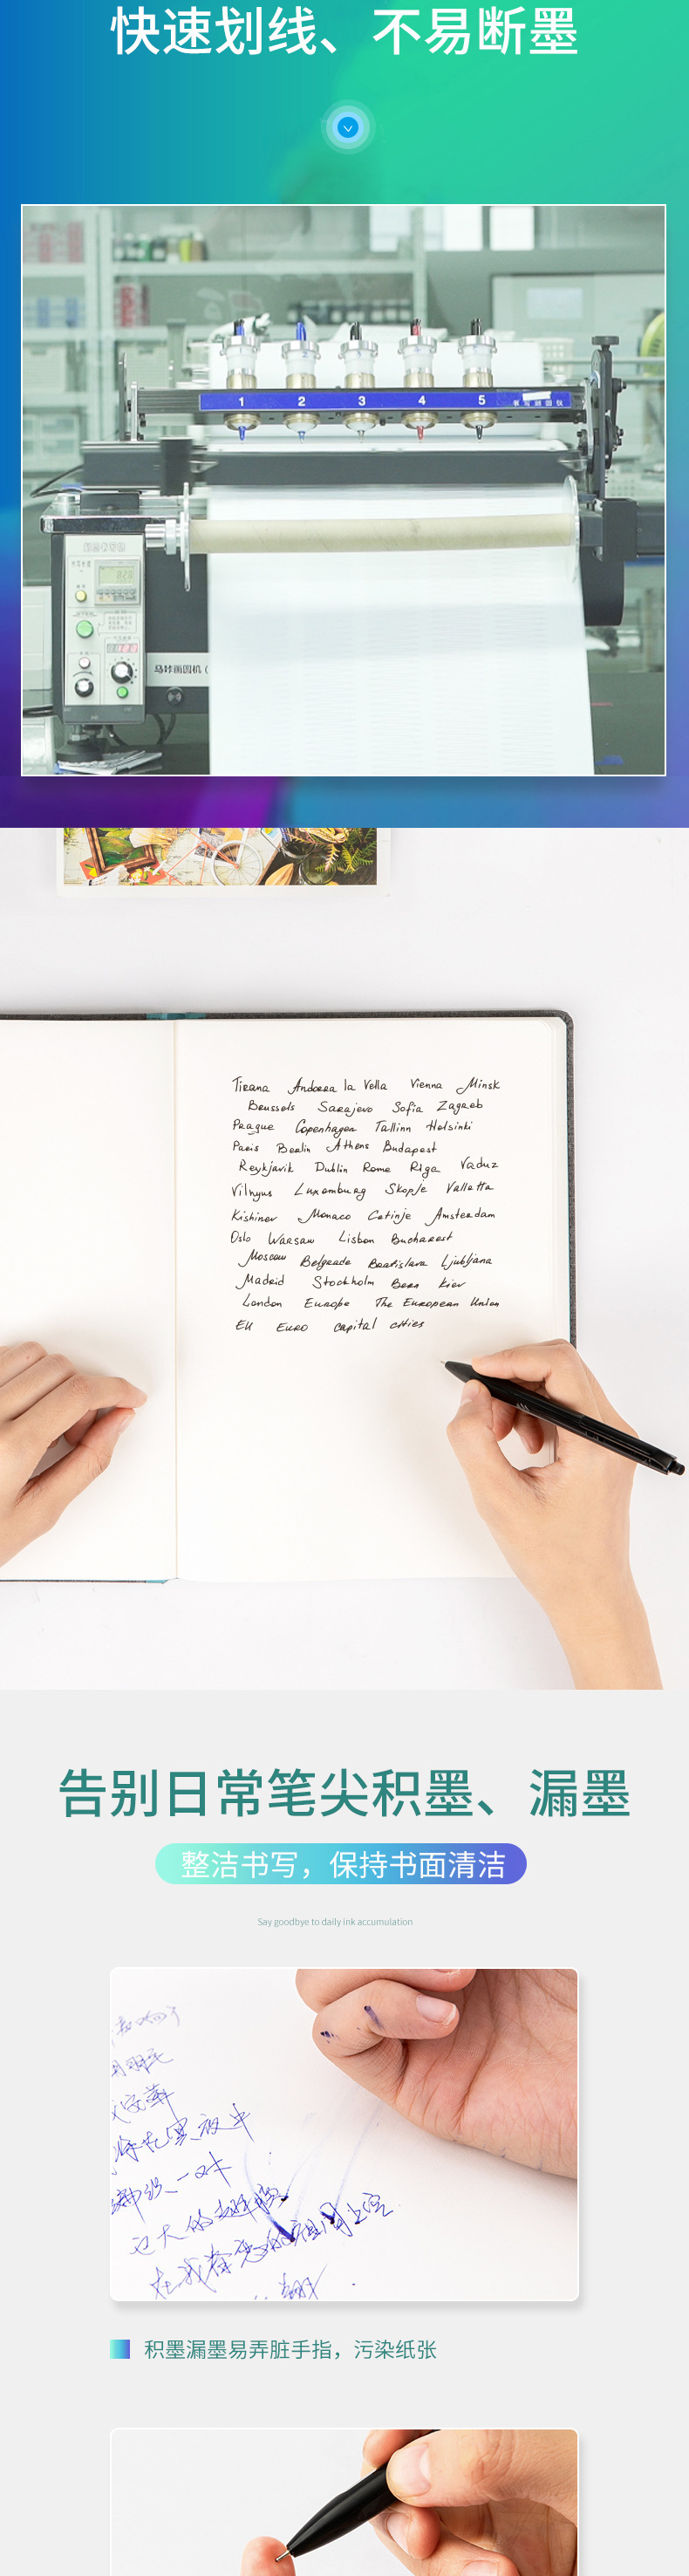 快速划线、不易断墨
1 2 3 4 5
Tirana Andorra la Vella Vienna Minsk
Brussels Sarajevo Sofia Zagreb
Prague Copenhagen Tallinn Helsinki
Paris Berlin Athens Budapest
Reykjavik Dublin Rome Riga Vaduz
Vilnyus Luxemburg Skopje Valletta
Kishinev Monaco Cetinje Amsterdam
Oslo Warsaw Lisbon Bucharest
Moscow Belgrade Bratislava Ljubljana
Madrid Stockholm Bern Kiev
London Europe The European Union
EU Euro capital cities
告别日常笔尖积墨、漏墨
整洁书写，保持书面清洁
Say goodbye to daily ink accumulation
积墨漏墨易弄脏手指，污染纸张